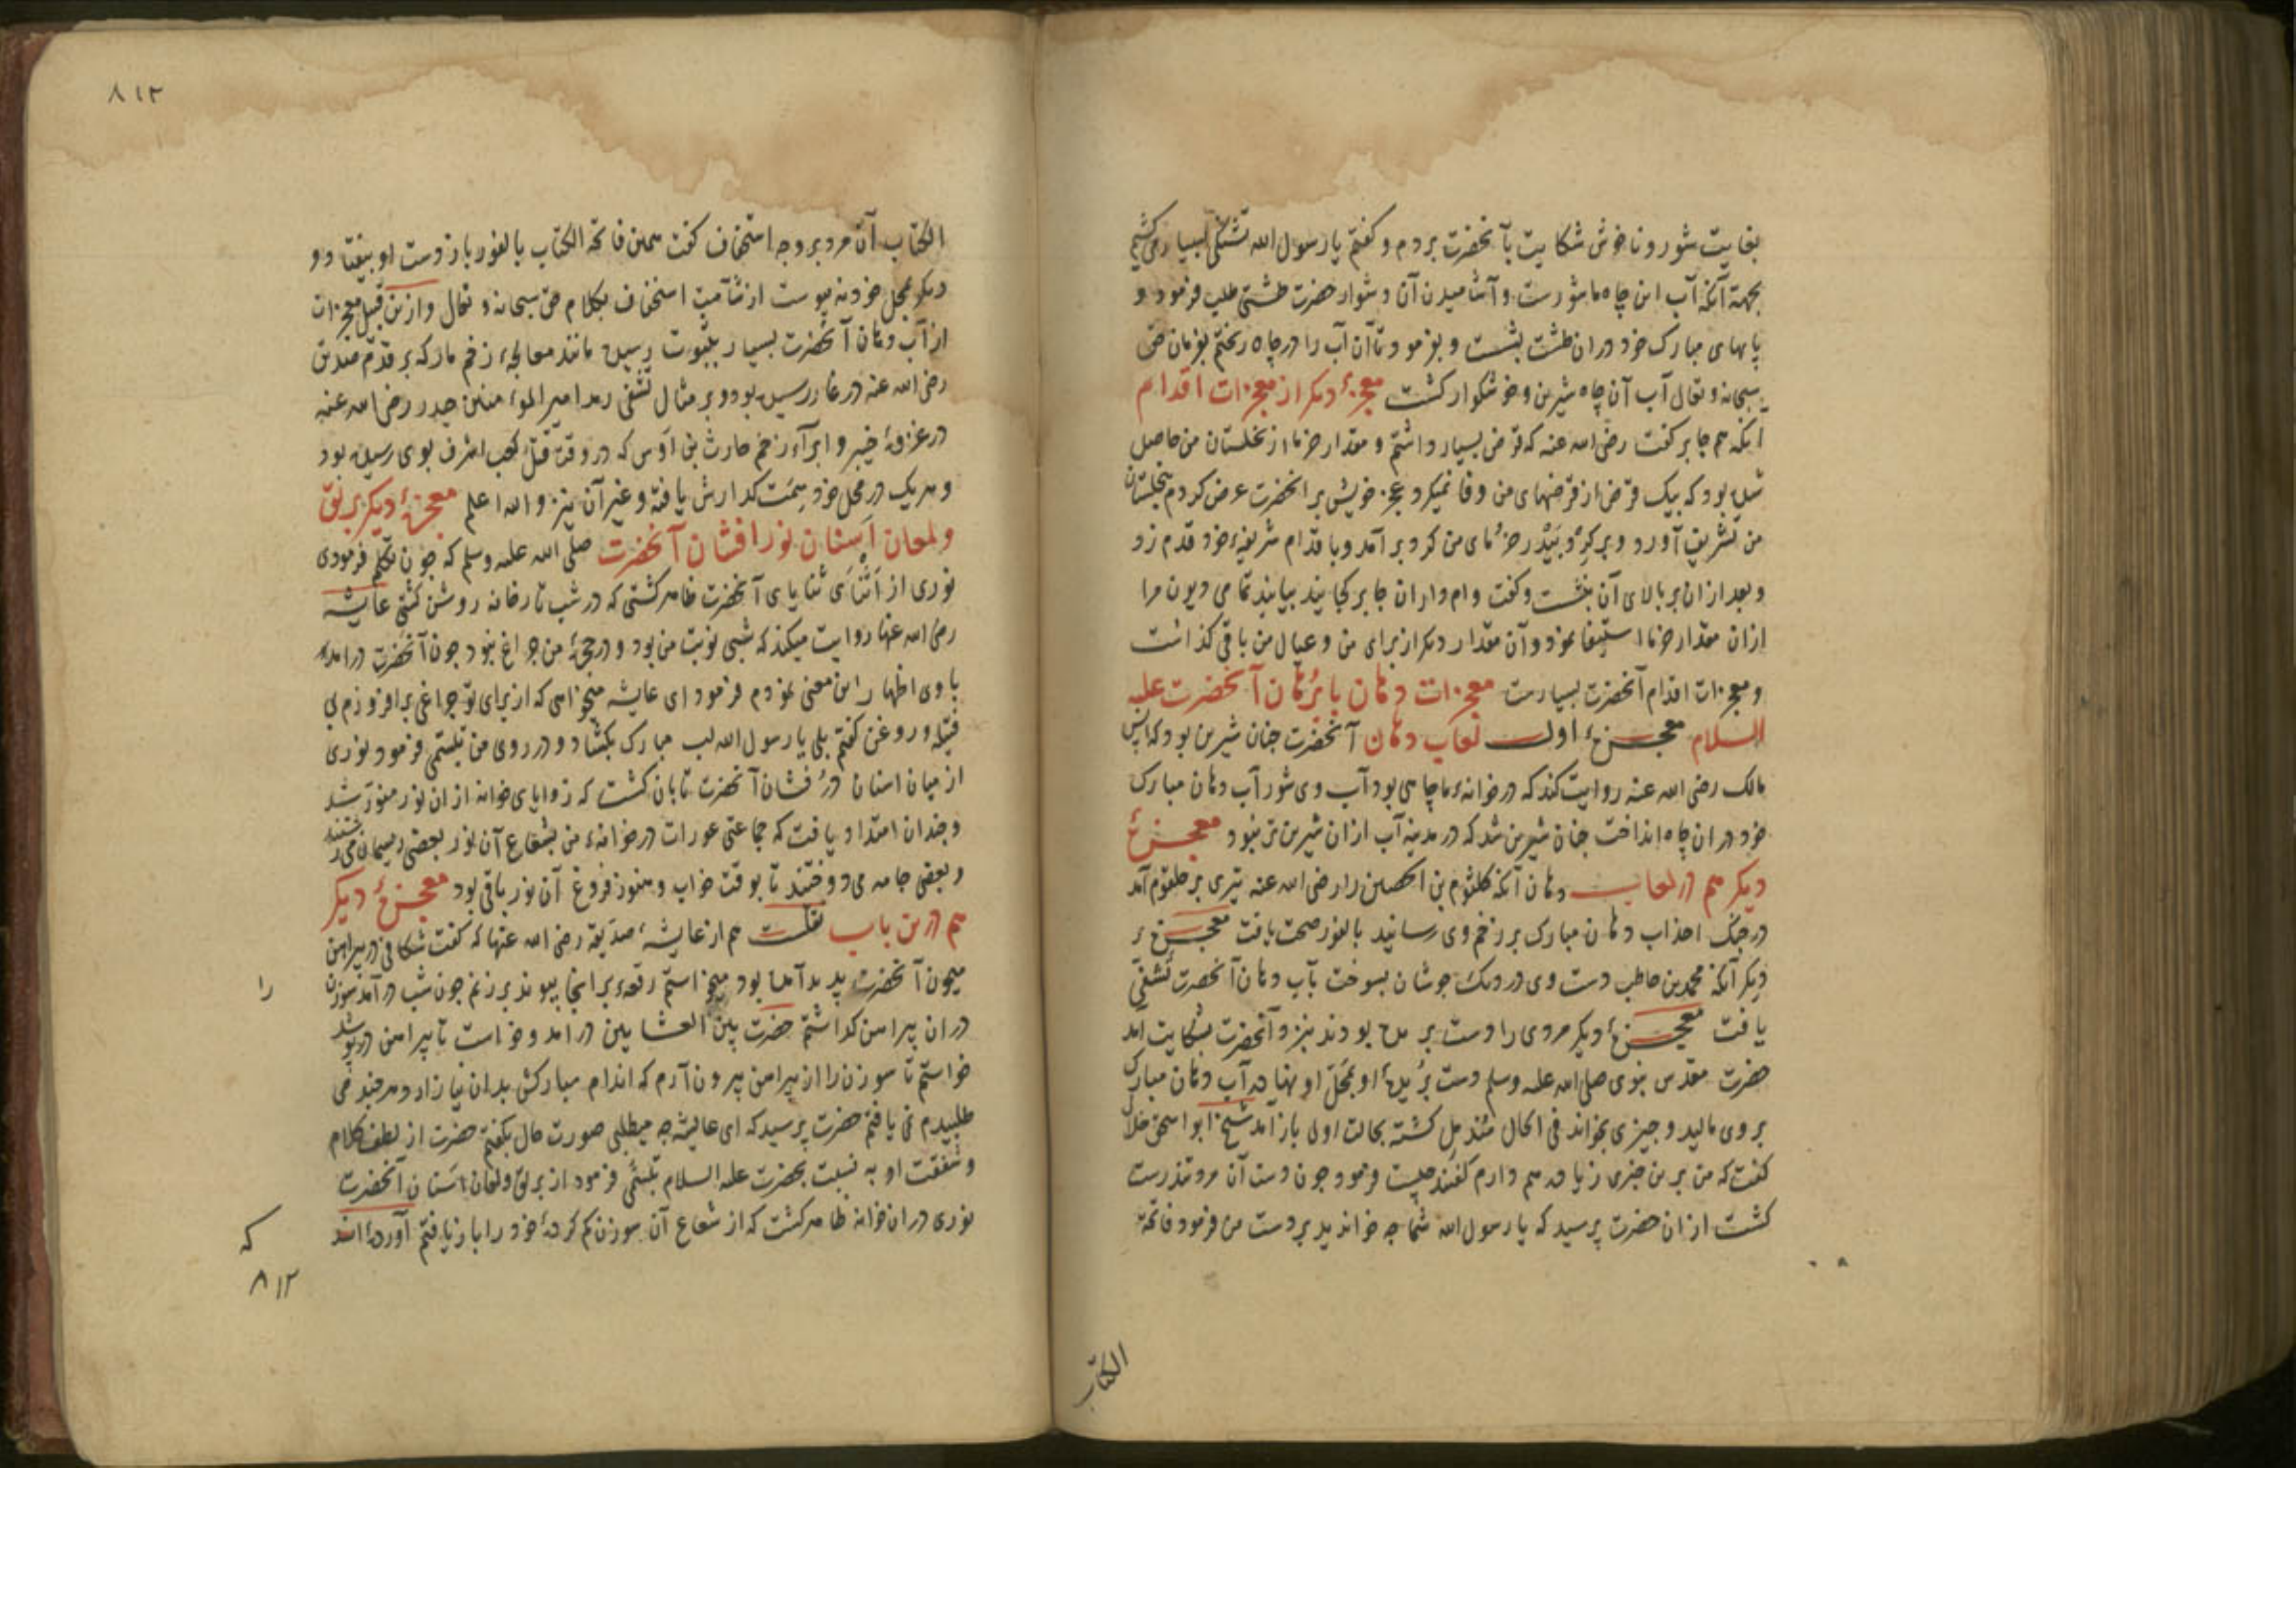 بغایت شور و ناخوش شکایت بآنحضرت بردم و کفتم یا رسول الله تشنکی بسیار می کشیم
بجهة آنکه آب این چاه ما شورست و آشامیدن آن دشوار حضرت طشتی طلب فرمود و
پایهای مبارک خود دران طشت بشست و بفرمود تا آن آب را در چاه ریختم بفرمان حق
سبحانه و تعالی آب آن چاه شیرین و خوشکوار کشت معجزهٔ دیکر از معجزات اقدام
آنکه هم جابر کفت رضی الله عنه که قرض بسیار داشتم و مقدار خرما از نخلستان من حاصل
شده بود که بیک قرض از قرضهای من وفا نمیکرد عجز خویش بر آنحضرت عرض کردم بنخلستان
من تشریف آورد و بر کرد بیدر خرمای من کرد بر آمد و باقدام شریفهٔ خود قدم زد
و بعد ازان بر بالای آن بنشست و کفت وام داران جابر کجایند بیایند تمامی دیون مرا
ازان مقدار خرما استیفا نمود و آن مقدار دیکر از برای من و عیال من باقی کذاشت
و معجزات اقدام آنحضرت بسیارست معجزات دهان با برهان آنحضرت علیه
السلام معجزهٔ اول لعاب دهان آنحضرت چنان شیرین بود که انس
مالک رضی الله عنه روایت کند که در خانهٔ ما چاهی بود آب وی شور آب دهان مبارک
خود دران چاه انداخت چنان شیرین شد که در مدینه آب ازان شیرین تر نبود معجزهٔ
دیکر هم در لعاب دهان آنکه کلثوم بن الحصین را رضی الله عنه تیری بر حلقوم آمد
در جنک احد آب دهان مبارک بر زخم وی رسانید بالفور صحت یافت معجزهٔ
دیکر آنکه محمد بن حاطب دست وی در دیک جوشان بسوخت بآب دهان آنحضرت تشفی
یافت معجزهٔ دیکر مردی را دست بریده بودند نیز و آنحضرت بشکایت آمد
حضرت مقدس نبوی صلی الله علیه وسلم دست بریدهٔ او بمحل او نهاده آب دهان مبارک
بر وی مالید و چیزی بخواند فی الحال مندمل کشته بحالت اولی باز آمد شیخ ابو اسحق
کفت که من برین چیزی زیاده هم دارم کفتند چیست فرمود چون دست آن مرد تندرست
کشت ازان حضرت پرسید که یا رسول الله شما چه خواندید بر دست من فرمود فاتحة
الکتاب
٨١٣
الکتاب آن مرد بر وجه استخفاف کفت همین فاتحة الکتاب بالفور باز دست او بیفتاد و
دیکر بمحل خود نه پیوست از شآمت استخفاف بکلام حق سبحانه و تعالی و ازین قبیل معجزات
از آب دهان آنحضرت بسیار بثبوت رسیده مانند معالجهٔ زخم مار که بر قدم صدیق
رضی الله عنه در غار رسیده بود و بر مثال تشفی رمد امیر المؤمنین حیدر رضی الله عنه
در غزوهٔ خیبر و ابرآء زخم حارث بن اوس که در وقت قتل کعب اشرف بوی رسیده بود
و هر یک در محل خود سمت کذارش یافته و غیر آن نیز و الله اعلم معجزهٔ دیکر بریق
و لمعان اسنان نور افشان آنحضرت صلی الله علیه وسلم که چون تکلم فرمودی
نوری از اثنای ثنایای آنحضرت ظاهر کشتی که در شب تار خانه روشن کشتی عایشه
رضی الله عنها روایت میکند که شبی نوبت من بود و در حجرهٔ من چراغ نبود چون آنحضرت درآمد
با وی اظهار این معنی نمودم فرمود ای عایشه میخواهی که از برای تو چراغی برافروزم بی
فتیله و روغن کفتم بلی یا رسول الله لب مبارک بکشاد و در روی من تبسمی فرمود نوری
از میان اسنان در فشان آنحضرت تابان کشت که زوایای خانه ازان نور منور شد
و چندان امتداد یافت که جماعتی عورات در خانهٔ من بشعاع آن نور بعضی ریسمان می رشتند
و بعضی جامه می دوختند تا بوقت خواب و هنوز فروغ آن نور باقی بود معجزهٔ دیکر
هم درین باب نقلست هم از عایشهٔ صدیقه رضی الله عنها که کفت شکافی در پیراهن
میمون آنحضرت پدید آمده بود میخواستم رقعهٔ بر انجا پیوند بر زنم چون شب درآمد سوزن را
دران پیراهن کذاشتم حضرت بین العشائین در امد و خواست تا پیراهن در پوشد
خواستم تا سوزن را از پیراهن بیرون آرم که اندام مبارکش بدان نیازارد هر چند می
طلبیدم نمی یافتم حضرت پرسید که ای عایشه چه میطلبی صورت حال بکفتم حضرت از لطف کلام
و شفقت او به نسبت بحضرت علیه السلام تبسمی فرمود از بریق و لمعان اسنان آنحضرت
نوری دران خانه ظاهر کشت که از شعاع آن سوزن کم کردهٔ خود را باز یافتم آورده اند
که
٨١٢